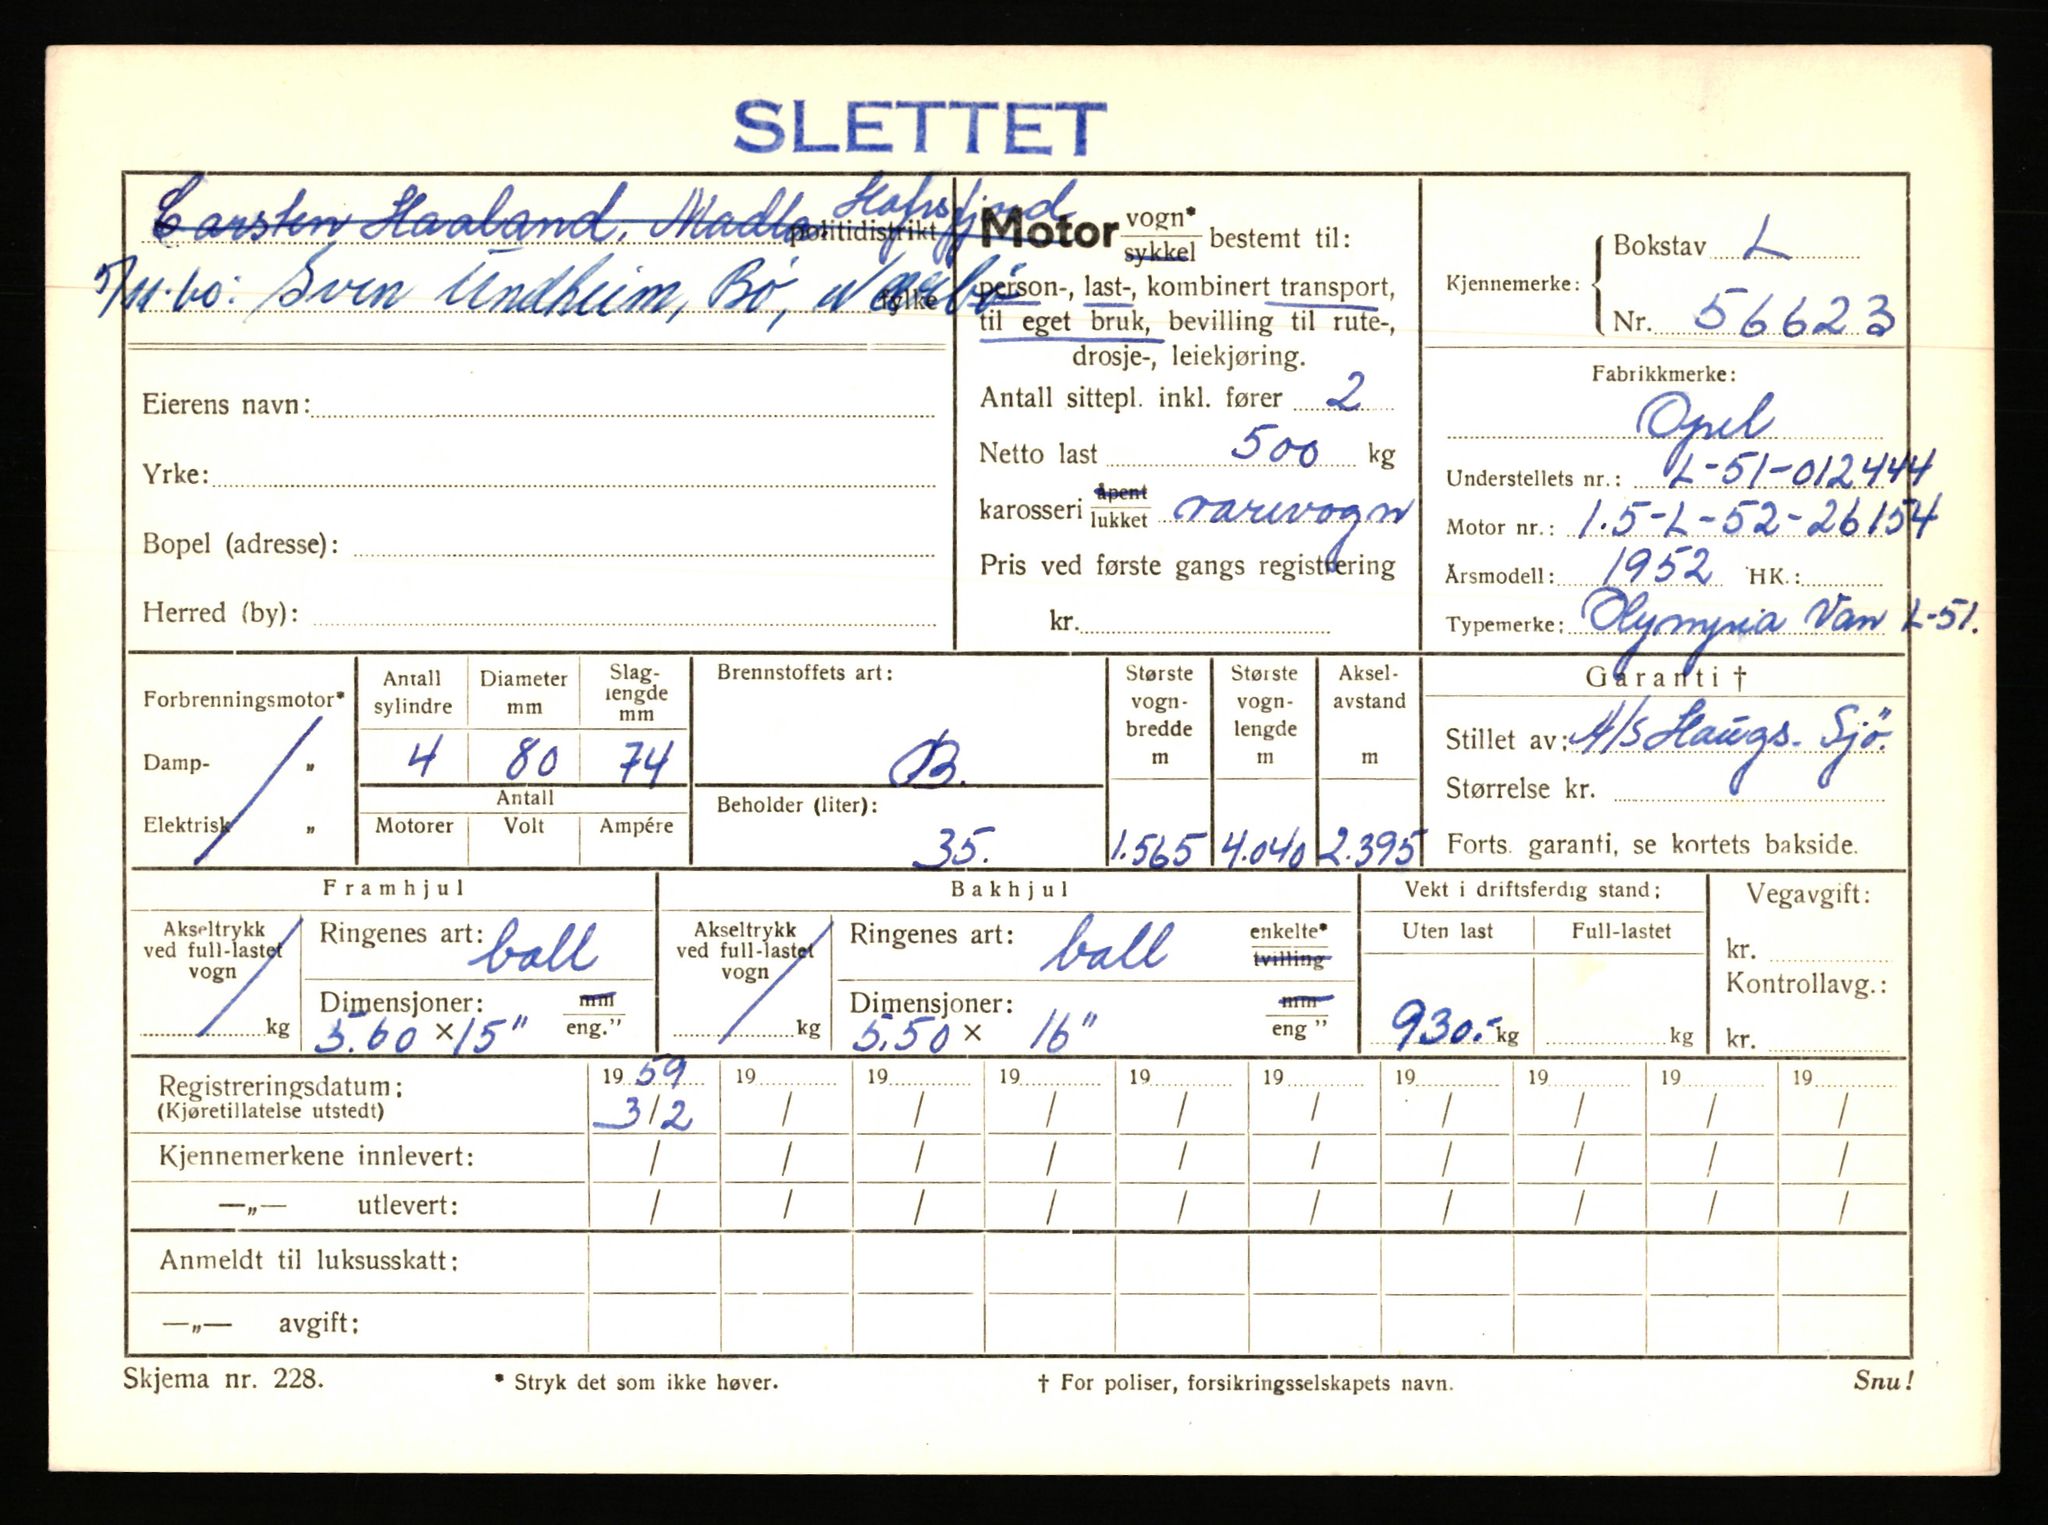 SLETTET
Carsten Haaland, Madla, Hafrsfjord
politidistrikt
5/11.60: Sven Undheim, Bø, Nærbø
fylke
Eierens navn:
Yrke:
Bopel (adresse):
Herred (by):
Motor vogn* / sykkel bestemt til:
person-, last-, kombinert transport,
til eget bruk, bevilling til rute-,
drosje-, leiekjøring.
Antall sittepl. inkl. fører 2
Netto last 500 kg
karosseri åpent / lukket varevogn
Pris ved første gangs registrering
kr.
Kjennemerke: Bokstav L
Nr. 56623
Fabrikkmerke:
Opel
Understellets nr.: L-51-012444
Motor nr.: 1.5-L-52-26154
Årsmodell: 1952 HK.:
Typemerke: Olympia Van L-51.
Forbrenningsmotor*
Damp- „
Elektrisk „
Antall sylindre 4
Diameter mm 80
Slaglengde mm 74
Antall
Motorer Volt Ampére
Brennstoffets art:
B.
Beholder (liter):
35.
Største vogn-bredde m 1.565
Største vogn-lengde m 4.040
Aksel-avstand m 2.395
Garanti †
Stillet av: A/S Haugs. Sjö.
Størrelse kr.
Forts. garanti, se kortets bakside.
Framhjul
Akseltrykk ved full-lastet vogn kg
Ringenes art: ball
Dimensjoner: mm / eng."
5.60 × 15"
Bakhjul
Akseltrykk ved full-lastet vogn kg
Ringenes art: ball enkelte* / tvilling
Dimensjoner: mm / eng "
5.50 × 16"
Vekt i driftsferdig stand:
Uten last Full-lastet
930.- kg kg
Vegavgift:
kr.
Kontrollavg.:
kr.
Registreringsdatum: 19 59 19 19 19 19 19 19 19 19 19
(Kjøretillatelse utstedt) 3/2 / / / / / / / / /
Kjennemerkene innlevert: / / / / / / / / / /
—„— utlevert: / / / / / / / / / /
Anmeldt til luksusskatt:
—„— avgift:
Skjema nr. 228. * Stryk det som ikke høver. † For poliser, forsikringsselskapets navn. Snu!